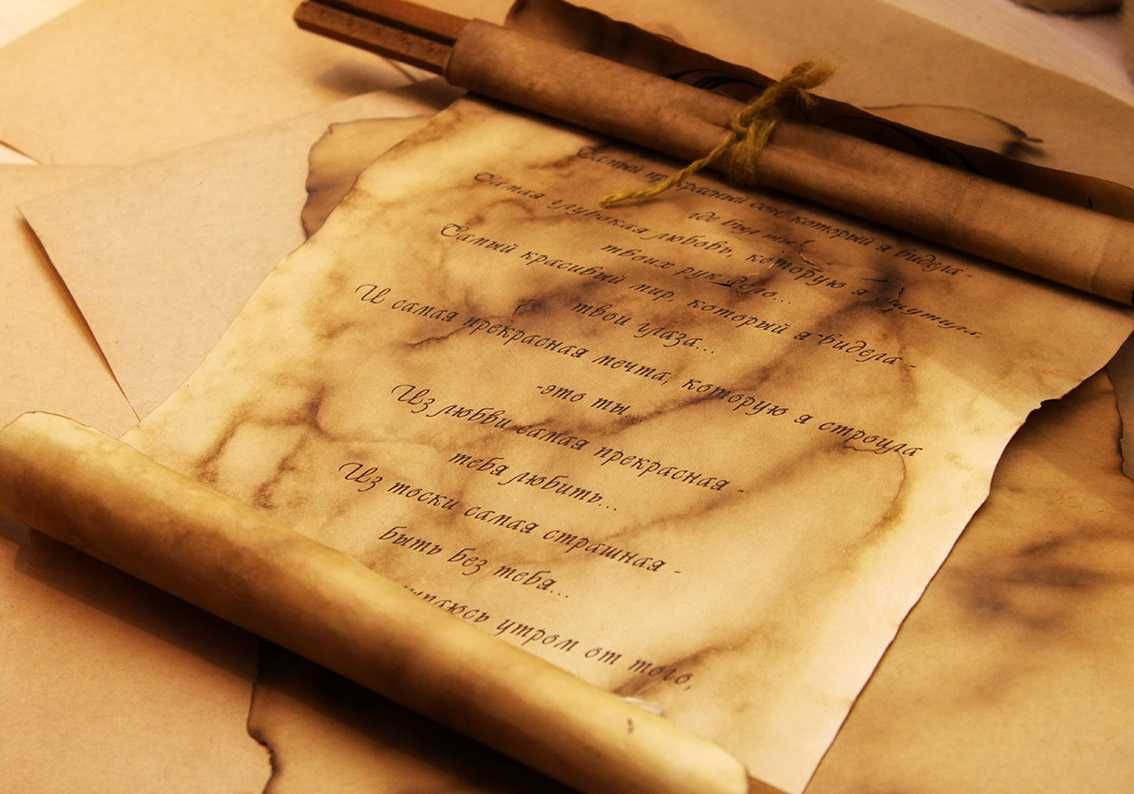 Самый прекрасный сон, который я видела -
где был
Самая глубокая любовь, которую я
твоих рук
Самый красивый мир, который я видела -
твои глаза...
И самая прекрасная мечта, которую я строила
-это ты...
Из любви самая прекрасная -
тебя любить...
Из тоски самая страшная -
быть без тебя...
утром от того,